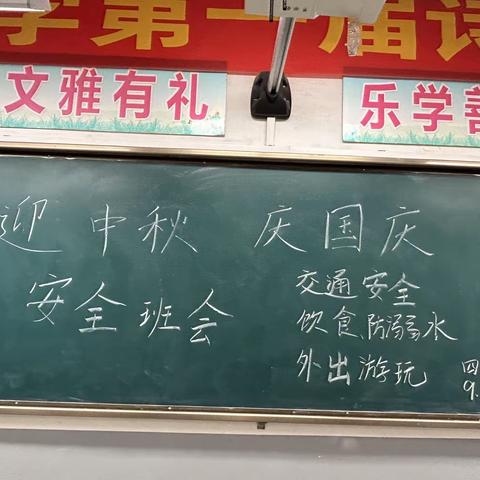 学第一届诗
文雅有礼
乐学善
迎 中秋 庆国庆
安全班会
交通安全
饮食、防溺水
外出游玩
四
9.